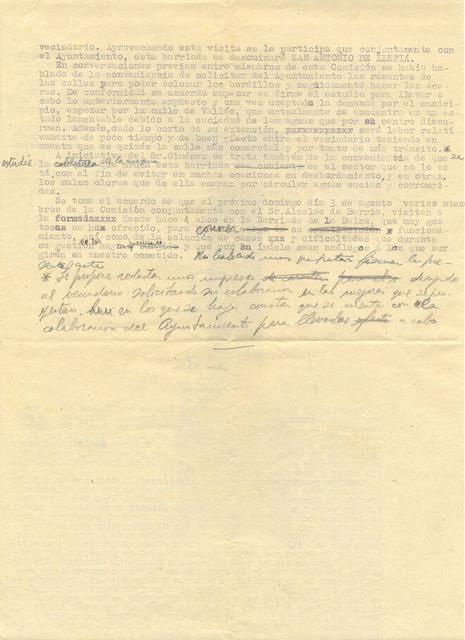 vecindario. Aprovechando esta visita se le participa que conjuntamente con
el Ayuntamiento, esta barriada se denominará SAN ANTONIO DE LLEFIÀ.
En conversaciones previas entre miembros de esta Comisión se había ha-
blado de la conveniencia de solicitar del Ayuntamiento las rasantes de
las calles para poder colocar los bordillos y seguidamente hacer las ace-
ras. De conformidad se acuerda empezar en firme el estudio para llevar a
cabo lo anteriormente expuesto y una vez aceptada la demanda por el munici-
pio, empezar por la calle de Vallés, que actualmente se encuentra en un es-
tado lamentable debido a la suciedad de las aguas que por su centro discu-
rren. Además, dado lo corto de su extensión, xxxxxxxxxxxx será labor relati-
vamente de poco tiempo y de buen efecto entre el vecindario teniendo en
cuenta que es quizás la calle más comercial y por tanto de más tránsito. *
A iniciativa del Sr. Giménez se trata también de la conveniencia de que se
estudie la cobertura de la esta barriada en el sector que no lo es-
tá, con el fin de evitar en muchas ocasiones su desbordamiento, y en otras,
los malos olores que de ella emanan por circular aguas sucias y corrompi-
das.
Se toma el acuerdo de que el próximo domingo día 3 de agosto varios miem-
bros de la Comisión conjuntamente con el Sr. Alcalde de Barrio, visiten a
la formada desde hace 4 años en la Barriada de La Balsa, que muy gus-
tosa se ha ofrecido, para conocer su funciona-
miento, así como de la solución de casos xxx y dificultades que durante
su gestión y que por su índole sean análogos a los que sur-
girán en nuestro cometido. No habiendo más
* Se propone redactar unos impresos dirigido
al vecindario solicitando su colaboración en las mejoras que se pro-
yectan, en los que se haga constar que se cuenta con la
colaboración del Ayuntamiento para llevarlas a cabo